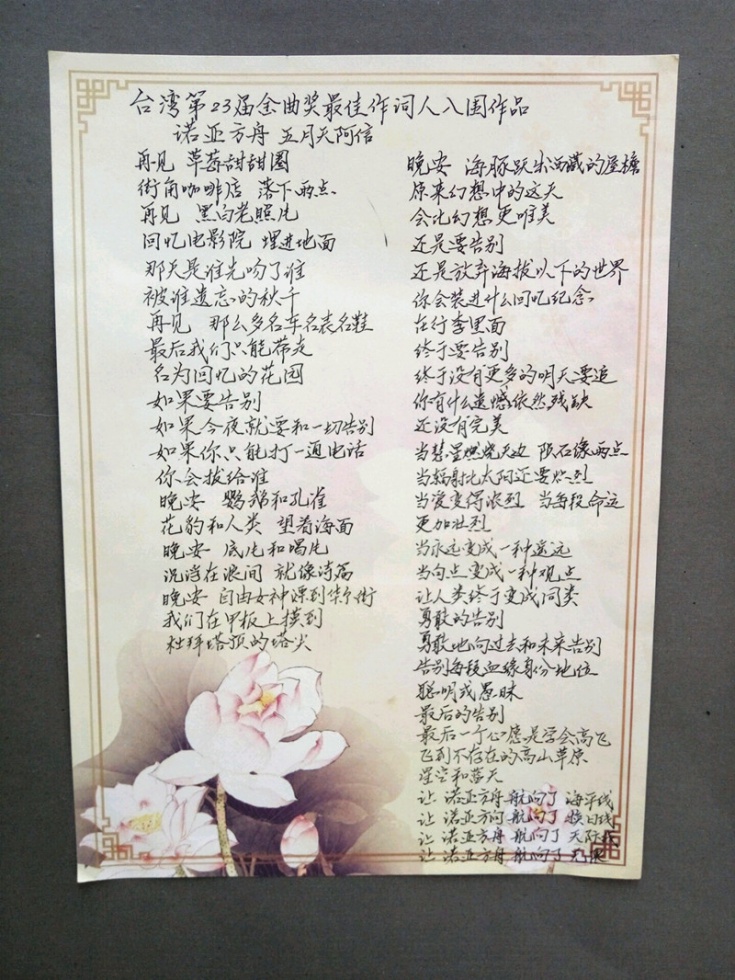 台湾第23届金曲奖最佳作词人入围作品
诺亚方舟 五月天阿信
再见 草莓甜甜圈
街角咖啡店 落下雨点
再见 黑白老照片
回忆电影院 埋进地面
那天是谁先吻了谁
被谁遗忘的秋千
再见 那么多名车名表名鞋
最后我们只能带走
名为回忆的花园
如果要告别
如果今夜就要和一切告别
如果你只能打一通电话
你会拨给谁
晚安 鹦鹉和孔雀
花豹和人类 望着海面
晚安 底片和唱片
沉浮在浪间 就像诗篇
晚安 自由女神漂到华尔街
我们在甲板上摸到
杜拜塔顶的塔尖
晚安 海豚跃出西藏的屋檐
原来幻想中的这天
会比幻想更唯美
还是要告别
还是放弃海拔以下的世界
你会装进什么回忆纪念
在行李里面
终于要告别
终于没有更多的明天要追
你有什么遗憾依然残缺
还没有完美
当彗星燃烧天边 陨石像雨点
当辐射比太阳还要炽烈
当爱变得浓烈 当每段命运
更加壮烈
当永远变成一种遥远
当句点变成一种观点
让人类终于变成同类
勇敢的告别
勇敢地向过去和未来告别
告别每段血缘身份地位
聪明或愚昧
最后的告别
最后一个心愿是学会高飞
飞到不存在的高山草原
星空和蓝天
让 诺亚方舟 航向了 海平线
让 诺亚方向 航向了 换日线
让 诺亚方舟 航向了 天际线
让 诺亚方舟 航向了